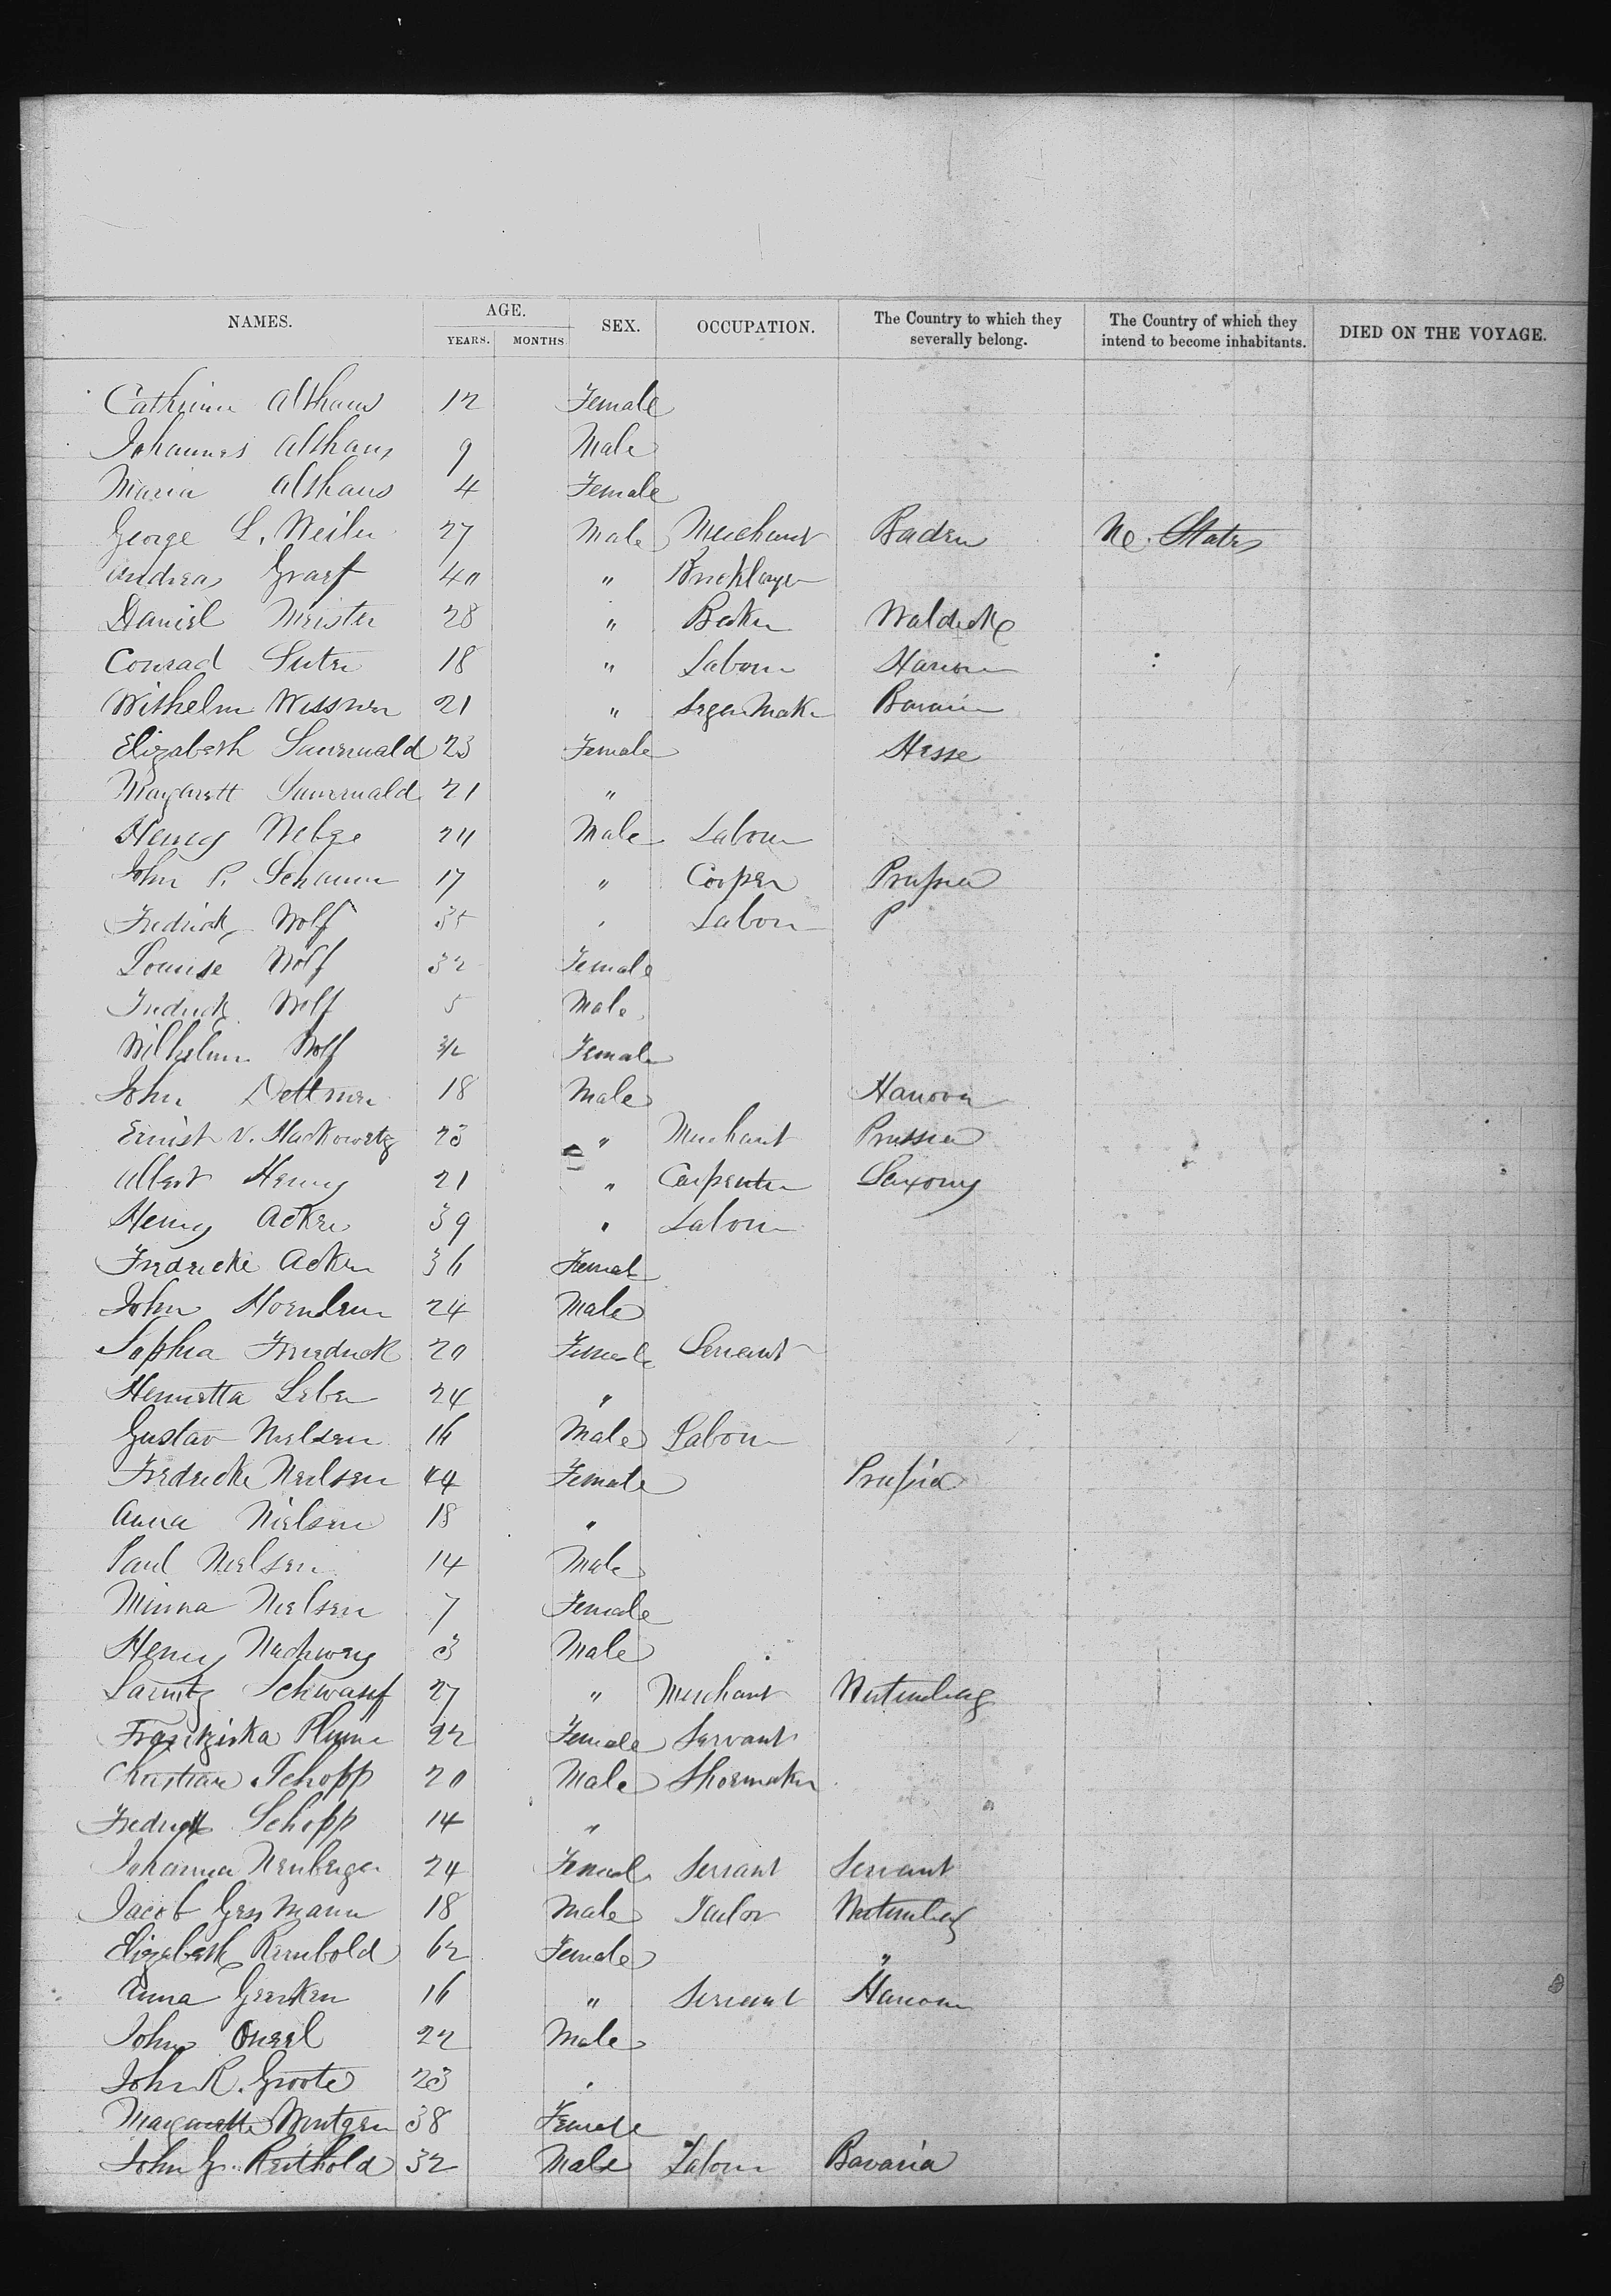 NAMES. AGE. SEX. OCCUPATION. The Country to which they severally belong. The Country of which they intend to become inhabitants. DIED ON THE VOYAGE.
YEARS. MONTHS
Althaus 12 Female
Johannes Althaus 9 Male
Maria Althaus 4 Female
George L. Weiler 27 Male Merchant Baden States
Andreas Graef 40 " Bricklayer
Daniel Meister 28 " Waldeck
Conrad Suter 18 " Labour Hanover
Wilhelm Wessner 21 " Segar Maker Bavaria
Elizabeth Sauerwald 23 Female Hesse
Margarett Sauerwald 21 "
Henry 24 Male Labour
John P. Schaum 17 " Cooper Prussia
Fredrick Wolf 35 Labour P
Louise Wolf 32 Female
Fredrick Wolf 5 Male
Wilhelm Wolf Female
John Dettmer 18 Male Hanover
Ernist V. Mackowetz 23 " Merchant Prussia
Albert Henry 21 " Carpenter Saxony
Henry Acker 39 " Labour
Fredricke Acker 36 Female
John 24 Male
Sophia Friedrick 20 Female Servant
Henrietta 24 "
Gustav Nielsen 16 Male Labour
Fredricke Neilsen 44 Female Prussia
Anna Nielsen 18 "
Paul Nielsen 14 Male
Minna Nielsen 7 Female
Henry Nachweg 3 Male
27 " Merchant Wurtemberg
Frantziska 22 Female Servant
Christian Schopp 20 Male Shoemaker
Schopp 14 "
Johanna Neuberger 24 Female Servant Servant
Jacob Gessmann 18 Male Tailor Wurtemberg
Elizabeth Reinbold 62 Female "
Anna Gerken 16 " Servant Hanover
John 22 Male
John R. Groote 23 "
Margarette Wintgen 38 Female
John G. Reithold 32 Male Labour Bavaria